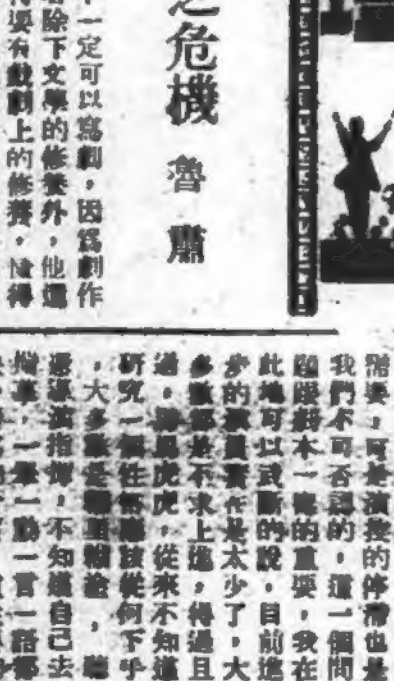 之危機
魯肅
不一定可以寫劇，因爲劇作
者除下文學的修養外，他還
得要有戲劇上的修養，懂得
需要，可是演技的停滯也是
我們不可否認的，這一個問
題跟劇本一樣的重要，我在
此地可以武斷的說，目前進
步的演員實在是太少了，大
多數都是不求上進，得過且
過，馬馬虎虎，從來不知道
研究一個性格應該從何下手
，大多數是糊里糊塗，聽
導演指揮，不知道自己去
揣摩，一舉一動一言一語都